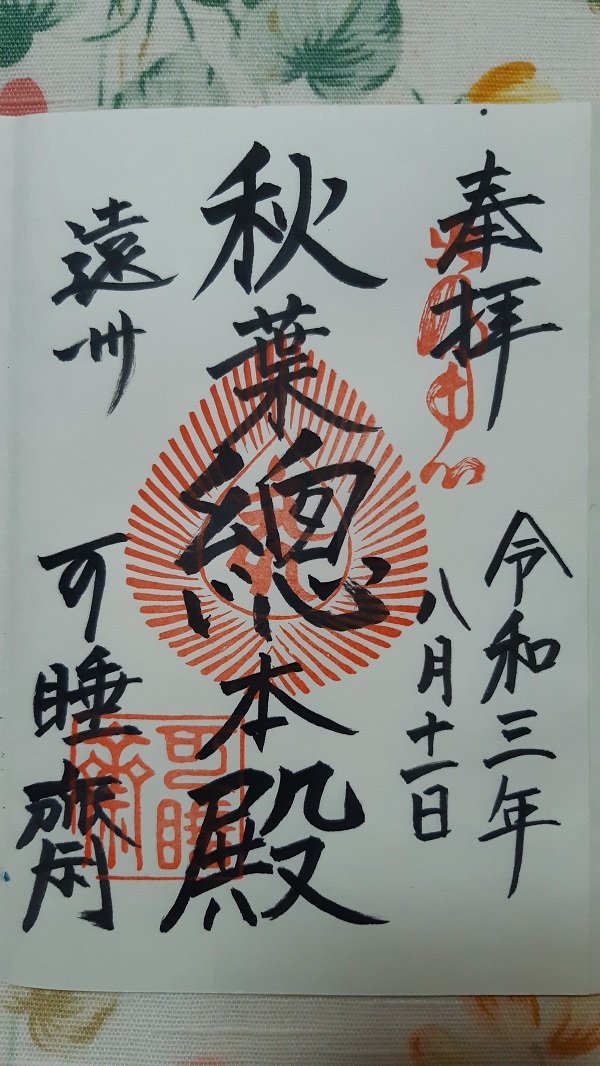 奉拝
令和三年
八月十一日
秋葉總本殿
遠州
可睡齋
可睡齋